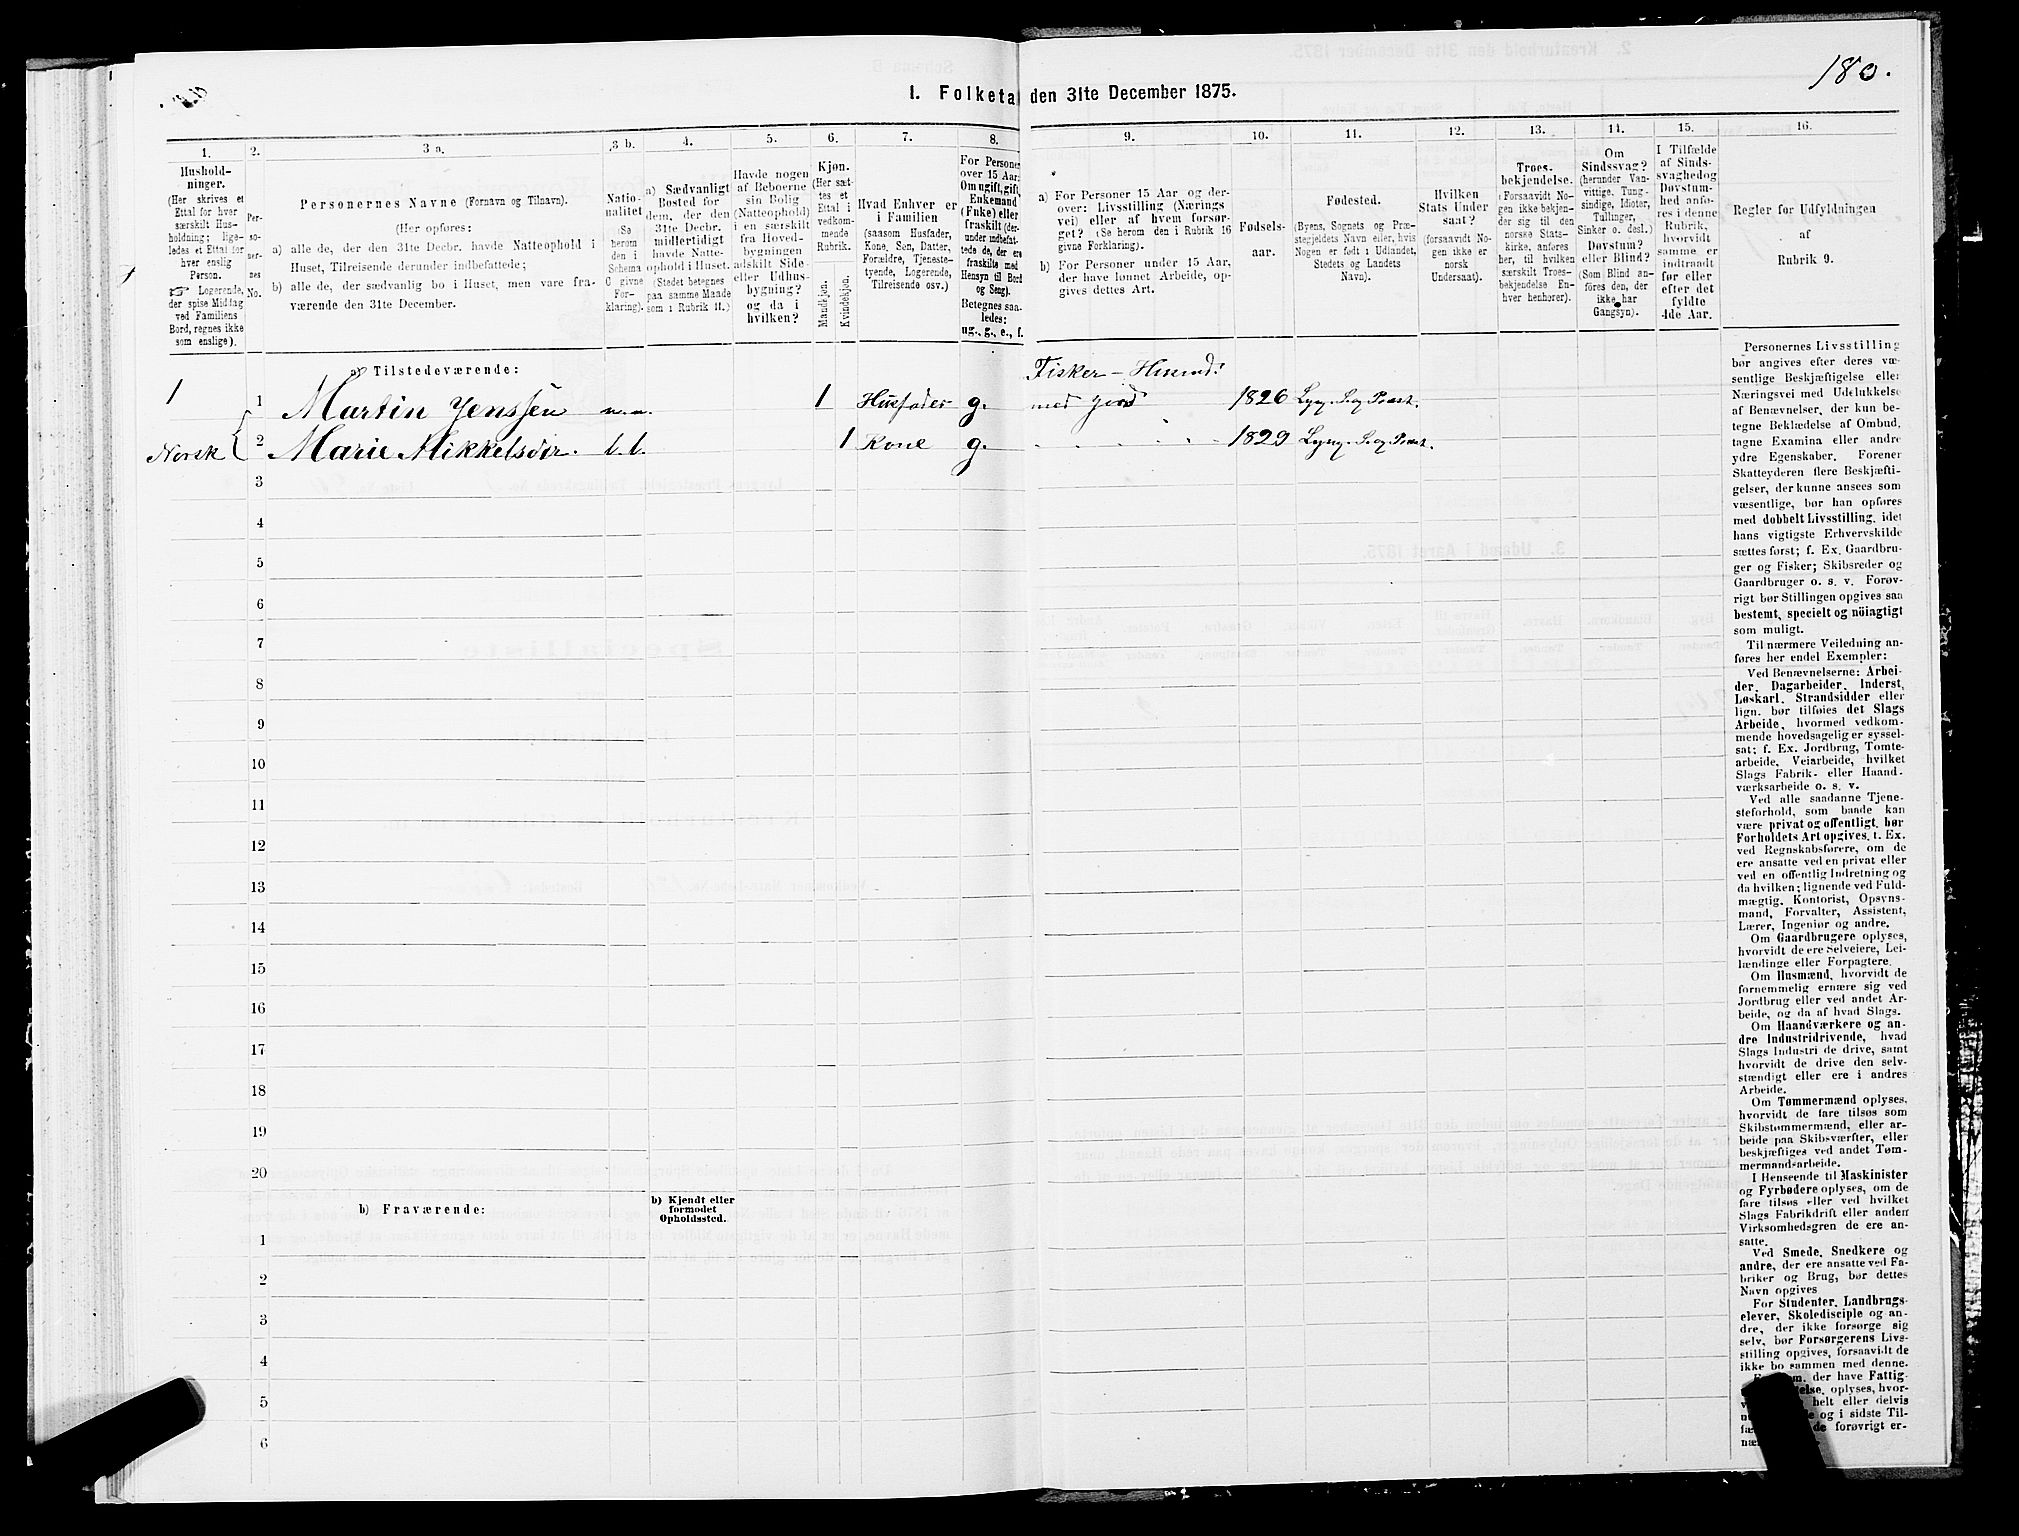 180.
1. Folketal den 31te December 1875.
1.
2.
3 a.
3 b.
4.
5.
6.
7.
8.
9.
10.
11.
12.
13.
14.
15.
16.
Hushold-
ninger.
(Her skrives et
Ettal for hver
særskilt Hus-
holdning; lige-
ledes et Ettal for
hver enslig
Person.
☞ Logerende,
der spise Middag
ved Familiens
Bord, regnes ikke
som enslige).
Per-
so-
ner-
nes
No.
Personernes Navne (Fornavn og Tilnavn).
(Her opføres:
a) alle de, der den 31te Decbr. havde Natteophold i
Huset, Tilreisende derunder indbefattede;
b) alle de, der sædvanlig bo i Huset, men vare fra-
værende den 31te December.
Natio-
nalitet
(Se
herom
den i
Schema
C givne
For-
klaring).
a) Sædvanligt
Bosted for
dem, der den
31te Decbr.
midlertidigt
havde Natte-
ophold i Huset.
(Stedet betegnes
paa samme Maade
som i Rubrik 11.)
Havde nogen
af Beboerne
sin Bolig
(Natteophold)
i en særskilt
fra Hoved-
bygningen
adskilt Side-
eller Udhus-
bygning?
og da i
hvilken?
Kjøn.
(Her sæt-
tes et
Ettal i
vedkom-
mende
Rubrik.
Mandkjøn.
Kvindekjøn.
Hvad Enhver er
i Familien
(saasom Husfader,
Kone, Søn, Datter,
Forældre, Tjeneste-
tyende, Logerende,
Tilreisende osv.)
For Personer
over 15 Aar:
Om ugift, gift,
Enkemand
(Enke) eller
fraskilt (der-
under indbefat-
tede de, der ere
fraskilte med
Hensyn til Bord
og Seng).
Betegnes saa-
ledes:
ug., g., e., f.
a) For Personer 15 Aar og der-
over: Livsstilling (Nærings
vei) eller af hvem forsør-
get? (Se herom den i Rubrik 16
givne Forklaring).
b) For Personer under 15 Aar,
der have lønnet Arbeide, op-
gives dettes Art.
Fødsels-
aar.
Fødested.
(Byens, Sognets og Præ-
stegjeldets Navn eller, hvis
Nogen er født i Udlandet,
Stedets og Landets
Navn).
Hvilken
Stats Under
saat?
(forsaavidt No-
gen ikke er
norsk
Undersaat).
Troes-
bekjendelse.
(Forsaavidt No-
gen ikke bekjen-
der sig til den
norske Stats-
kirke, anføres
her, til hvilken
særskilt Troes-
bekjendelse En-
hver henhører).
Om
Sindssvag?
(herunder Van-
vittige, Tung-
sindige, Idioter,
Tullinger,
Sinker o. desl.)
Døvstum?
eller Blind?
(Som Blind an-
føres den, der
ikke har
Gangsyn).
I Tilfælde
af Sinds-
svaghed og
Døvstum-
hed anfø-
res i denne
Rubrik,
hvorvidt
samme er
indtraadt
før eller
efter det
fyldte
4de Aar.
Regler for Udfyldningen
af
Rubrik 9.
a) Tilstedeværende:
Fisker - Husmd:
1 1 Martin Jenssen n.n. 1 Husfader g. med jord 1826 Lyng. S. og Præst.
Norsk 2 Marie Mikkelsdtr. b.b. 1 Kone g. 1829 Lyng. S. og Præst.
3
4
5
6
7
8
9
10
11
12
13
14
15
16
17
18
19
20
b) Fraværende:
b) Kjendt eller
formodet
Opholdssted.
1
2
3
4
5
6
Personernes Livsstilling
bør angives efter deres væ-
sentlige Beskjæftigelse eller
Næringsvei med Udelukkelse
af Benævnelser, der kun be-
tegne Beklædelse af Ombud,
tagne Examina eller andre
ydre Egenskaber. Forener
Skatteyderen flere Beskjæfti-
gelser, der kunne ansees som
væsentlige, bør han opføres
med dobbelt Livsstilling, idet
hans vigtigste Erhvervskilde
sættes først; f. Ex. Gaardbru-
ger og Fisker; Skibsreder og
Gaardbruger o. s. v. Forøv-
rigt bør Stillingen opgives saa
bestemt, specielt og nöiagtigt
som muligt.
Til nærmere Veiledning an-
føres her endel Exempler:
Ved Benævnelserne: Arbei-
der, Dagarbeider, Inderst,
Løskarl, Strandsidder eller
lign. bør tilføies det Slags
Arbeide, hvormed vedkom-
mende hovedsagelig er syssel-
sat; f. Ex. Jordbrug, Tomte-
arbeide, Veiarbeide, hvilket
Slags Fabrik- eller Haand-
værksarbeide o. s. v.
Ved alle saadanne Tjene-
steforhold, som baade kan
være privat og offentligt, bør
Forholdets Art opgives, f. Ex.
ved Regnskabsførere, om de
ere ansatte ved en privat eller
ved en offentlig Indretning og
da hvilken; lignende ved Fuld-
mægtig, Kontorist, Opsyns-
mand, Forvalter, Assistent,
Lærer, Ingeniør og andre.
Om Gaardbrugere oplyses,
hvorvidt de ere Selveiere, Lei-
lændinge eller Forpagtere.
Om Husmænd, hvorvidt de
fornemmelig ernære sig ved
Jordbrug eller ved andet Ar-
beide, og da af hvad Slags.
Om Haandværkere og an-
dre Industridrivende, hvad
Slags Industri de drive, samt
hvorvidt de drive den selv-
stændigt eller ere i andres
Arbeide.
Om Tømmermænd oplyses,
hvorvidt de fare tilsøs som
Skibstømmermænd, eller ar-
beide paa Skibsværfter, eller
beskjæftiges ved andet Tøm-
mermandsarbeide.
I Henseende til Maskinister
og Fyrbødere oplyses, om de
fare tilsøs eller ved hvilket
Slags Fabrikdrift eller anden
Virksomhedsgren de ere an-
satte.
Ved Smede, Snedkere og
andre, der ere ansatte ved Fa-
briker og Brug, bør dettes
Navn opgives
For Studenter, Landbrugs-
elever, Skoledisciple og an-
dre, der ikke forsørge sig
selv, bør Forsørgerens Livs-
stilling opgives, forsaavidt de
ikke bo sammen med denne.
der have Fattig-
oplyses, hvor-
helt eller delvis
og i sidste Til-
forøvrigt er-